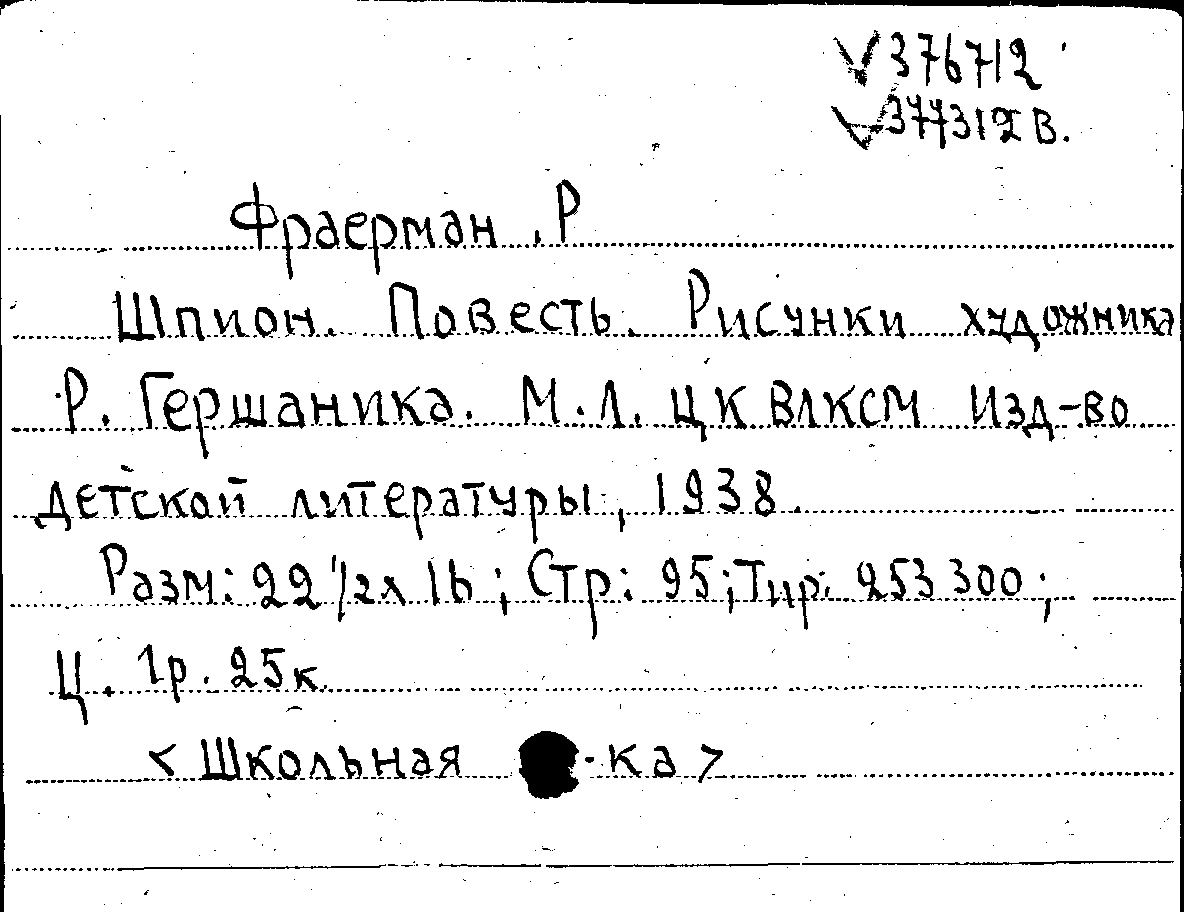 √376712
√377312 В.
Фраерман, Р
Шпион. Повесть. Рисунки художника
Р. Гершаника. М.Л. ЦК ВЛКСМ Изд-во
детской литературы, 1938.
Разм: 22 1/2 х 16; Стр: 95; Тир: 253300;
Ц. 1р. 25к.
<Школьная -ка>